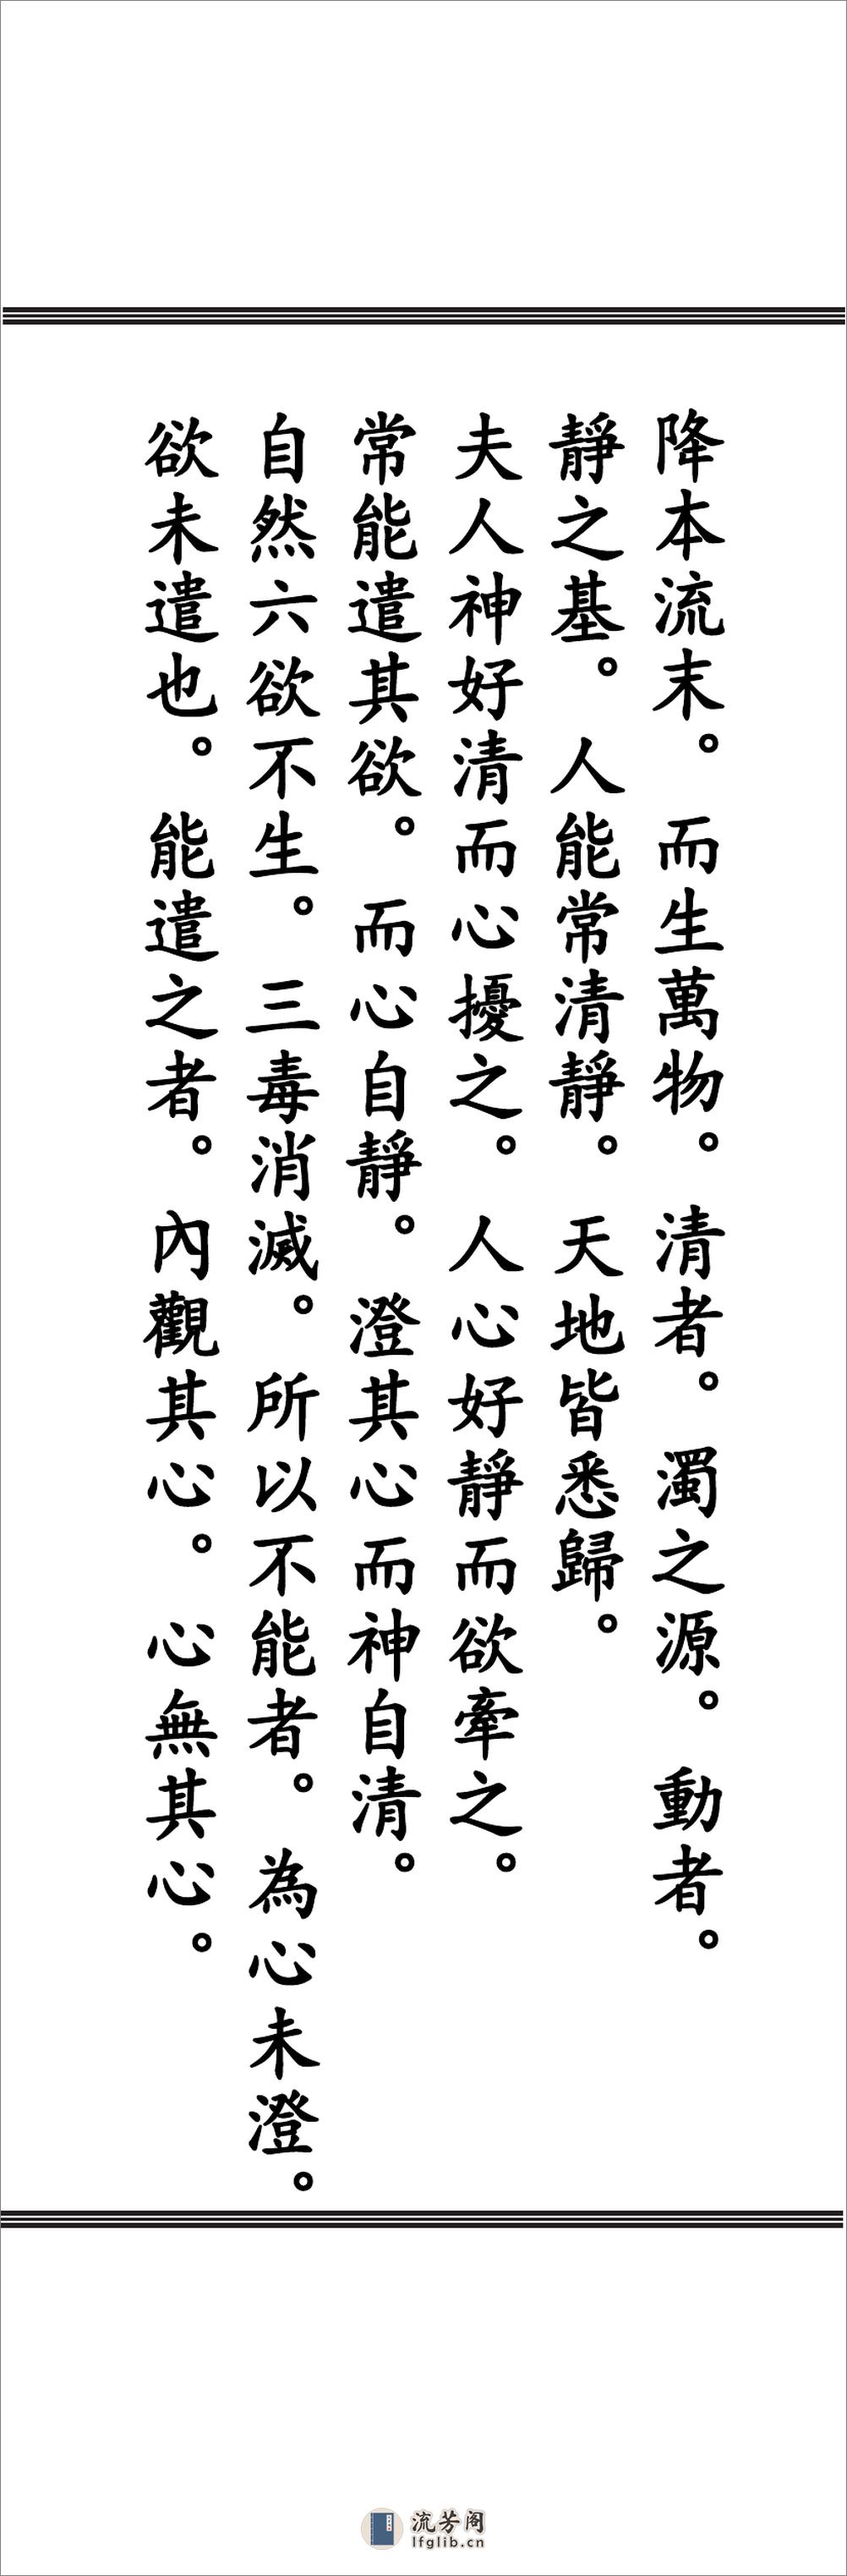 降本流末。而生萬物。清者。濁之源。動者。
靜之基。人能常清靜。天地皆悉歸。
夫人神好清而心擾之。人心好靜而欲牽之。
常能遣其欲。而心自靜。澄其心而神自清。
自然六欲不生。三毒消滅。所以不能者。為心未澄。
欲未遣也。能遣之者。內觀其心。心無其心。
流芳阁
lfglib.cn